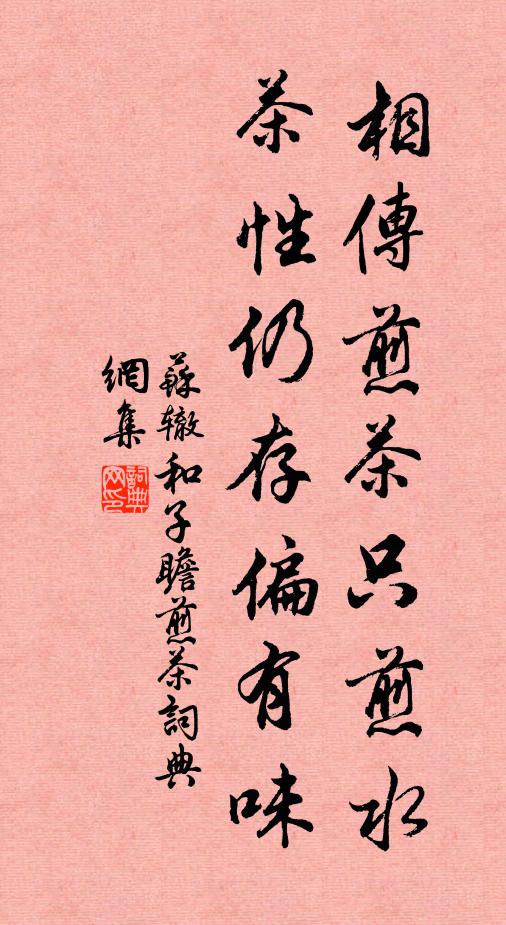 相傳煎茶只煎水
茶性仍存偏有味
蘇轍和子瞻煎茶詞典
網集
詞典
网印